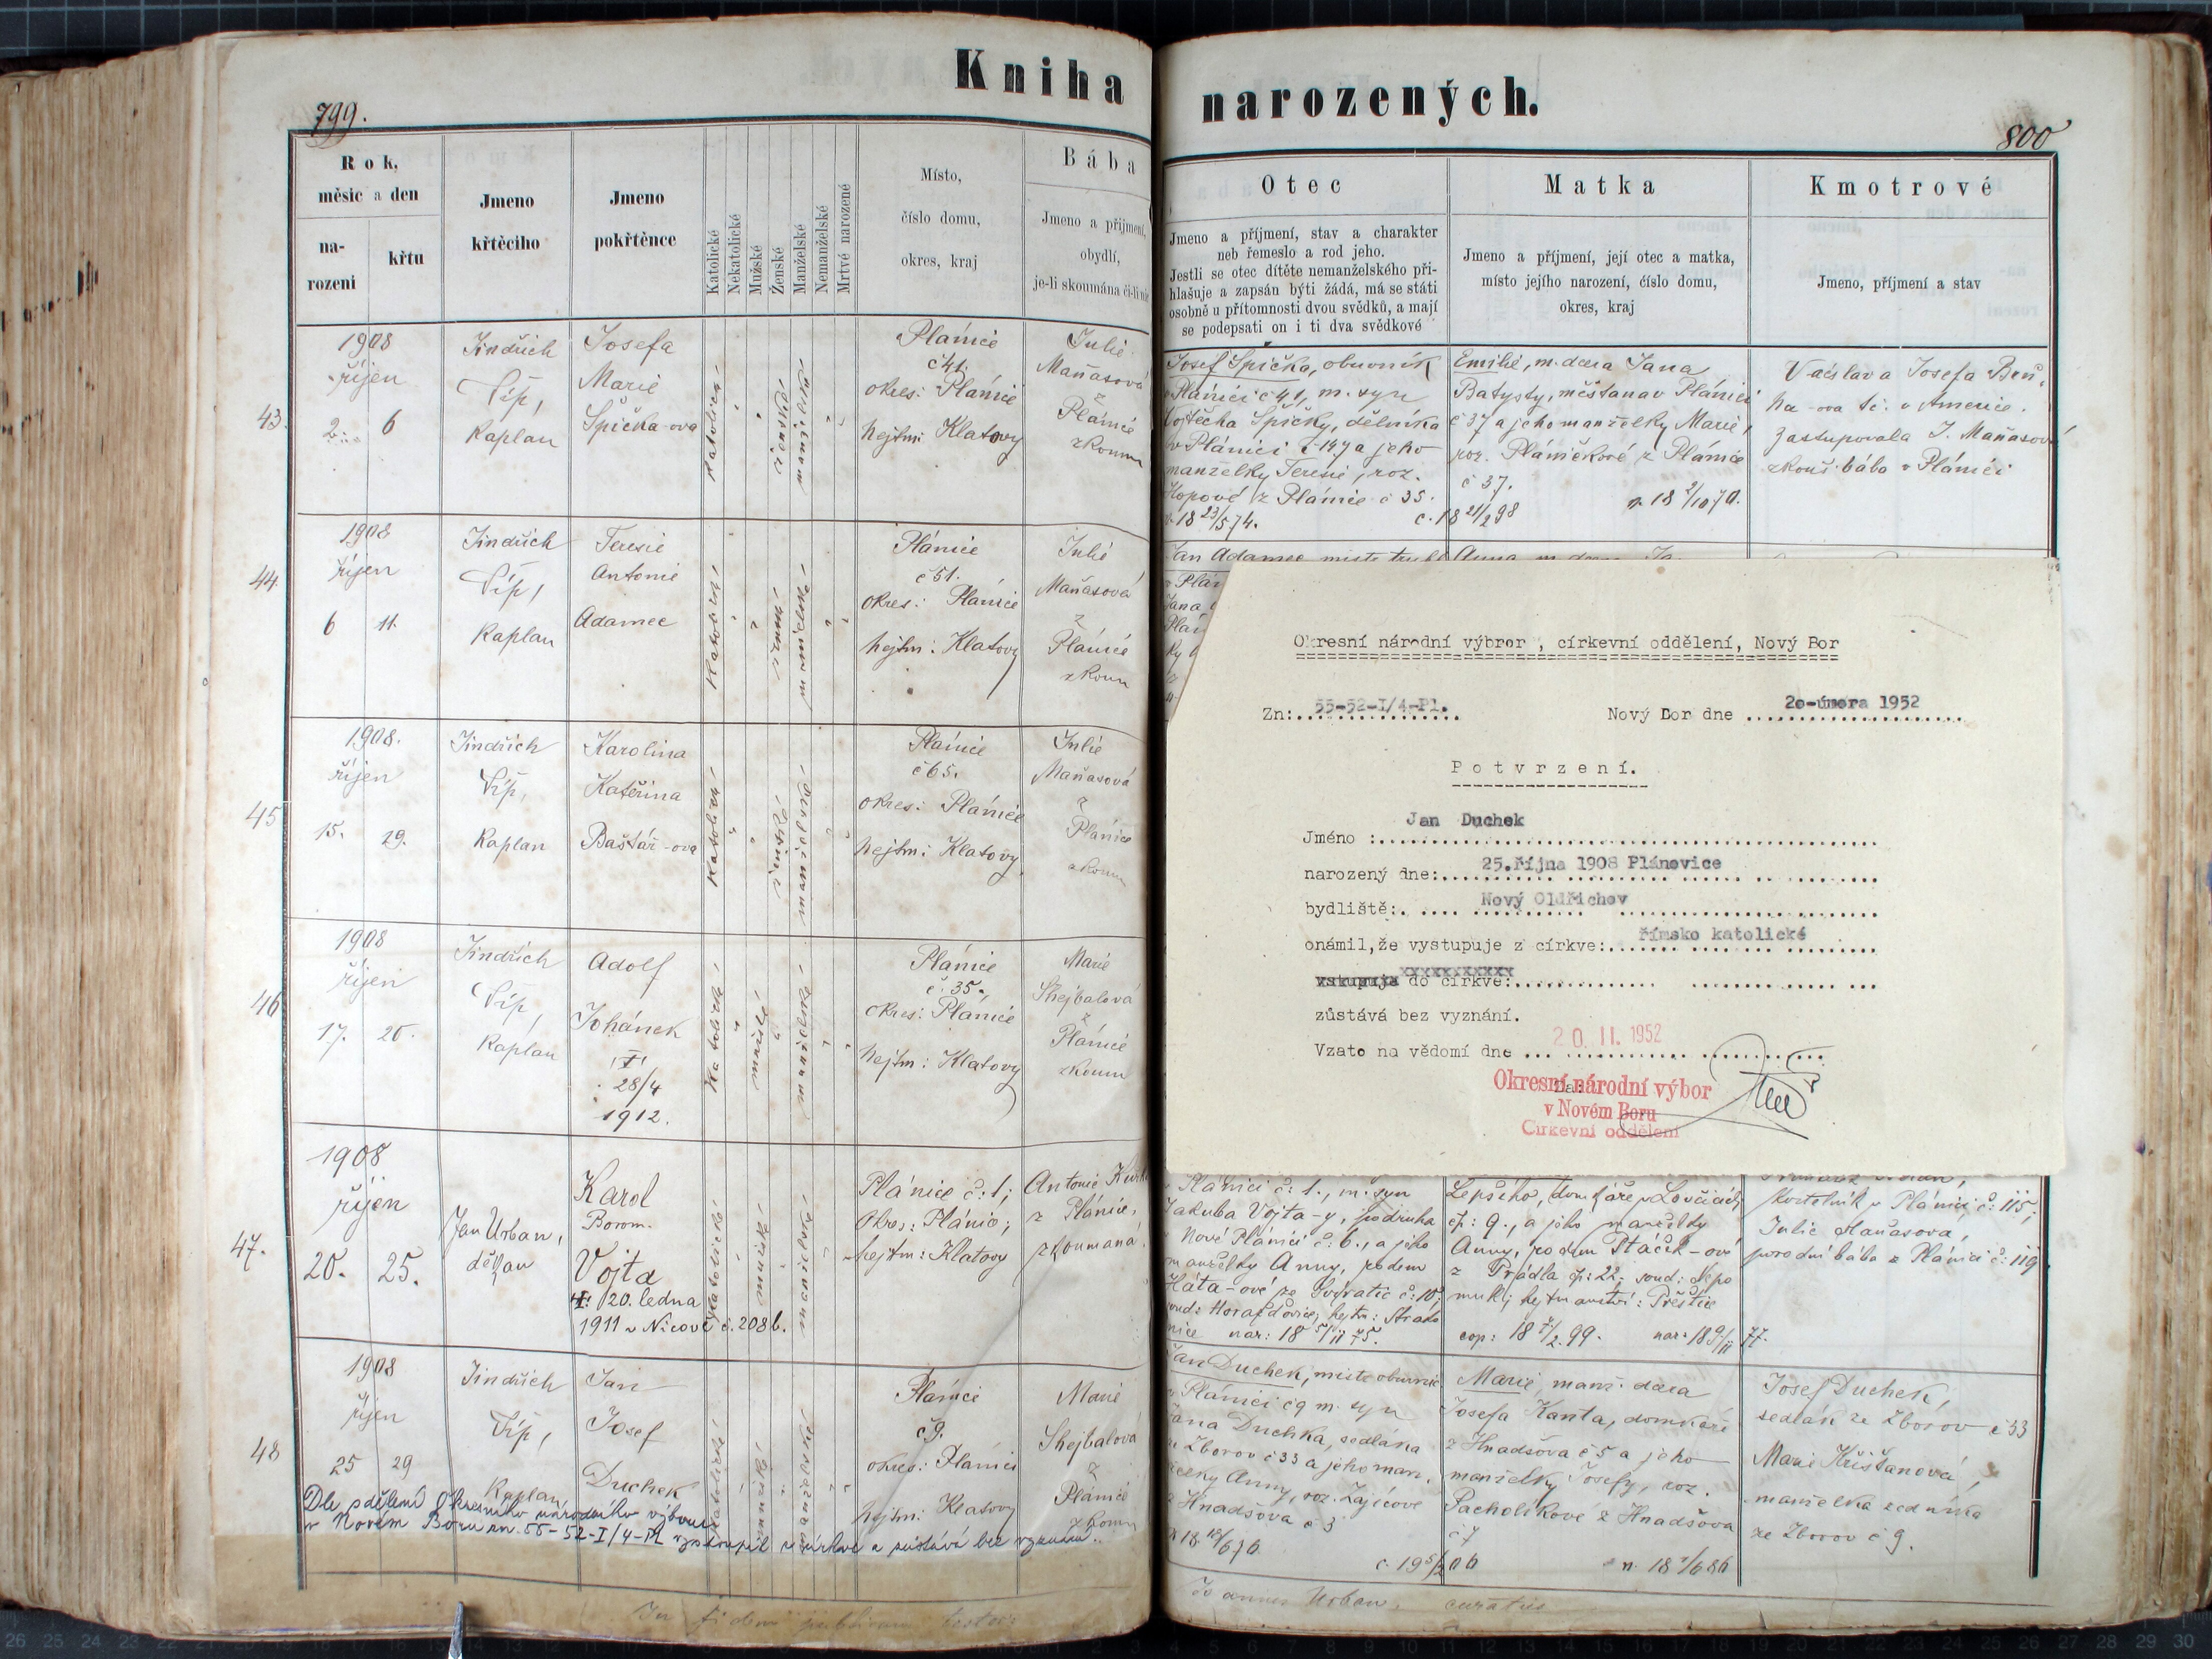 Kniha narozených.
799.
800
Rok, měsíc a den
narození
křtu
Jmeno křtěcího
Jmeno pokřtěnce
Katolické
Nekatolické
Mužské
Ženské
Manželské
Nemanželské
Mrtvé narozené
Místo,
číslo domu,
okres, kraj
Bába
Jmeno a příjmení,
obydlí,
je-li skoumána či-li
Otec
Jmeno a příjmení, stav a charakter
neb řemeslo a rod jeho.
Jestli se otec dítěte nemanželského při-
hlašuje a zapsán býti žádá, má se státi
osobně u přítomnosti dvou svědků, a mají
se podepsati on i ti dva svědkové
Matka
Jmeno a příjmení, její otec a matka,
místo jejího narození, číslo domu,
okres, kraj
Kmotrové
Jmeno, příjmení a stav
43.
1908
říjen
2. 6
Jindřich
Kaplan
Josefa
Marie
Špička-ova
katolické
ženské
manželské
Plánice
č 41.
okres: Plánice
hejtm: Klatovy
Julie
Maňasová
z
Plánice
zkoum
Josef Špička, obuvník
v Plánici č 41, m. syn
Vojtěcha Špičky, dělníka
v Plánici č 147 a jeho
manželky Teresie, roz.
Kopové z Plánice č 35.
n. 18 23/5 74.
Emilie, m. dcera Jana
Batysty, měšťana v Plánici
č 37 a jeho manželky Marie,
roz. Pláničkové z Plánice
č 37.
c. 18 21/2 98
n. 18 2/10 70.
Václava Josefa
-ova tč. v Americe.
Zastupovala J. Maňasová
zkouš. bába v Plánici
44
1908
říjen
6 11.
Jindřich
Kaplan
Teresie
Antonie
Adamec
katolické
ženské
manželské
Plánice
č 51.
okres: Plánice
hejtm: Klatovy
Julie
Maňasová
z
Plánice
zkoum
Jan Adamec
Anna
45
1908.
říjen
15. 29.
Jindřich
Kaplan
Karolina
Kateřina
Baštář-ova
katolické
ženské
manželské
Plánice
č 65.
okres: Plánice
hejtm: Klatovy
Julie
Maňasová
z
Plánice
zkoum
46
1908
říjen
17. 20.
Jindřich
Kaplan
Adolf
Johánek
28/4
1912.
katolické
mužské
manželské
Plánice
č. 35.
okres: Plánice
hejtm: Klatovy
Marie
Shejbalová
z
Plánice
zkoum
Okresní národní výbror , církevní oddělení, Nový Bor
Zn: 55-52-I/4-Pl.
Nový Bor dne 2o-února 1952
Potvrzení.
Jméno : Jan Duchek
narozený dne: 25.října 1908 Plánovice
bydliště: Nový Oldřichov
onámil,že vystupuje z církve: římsko katolické
vstupuje do církve: xxxxxxxxxxx
zůstává bez vyznání.
Vzato na vědomí dne 20. II. 1952
Okresní národní výbor
v Novém Boru
Církevní oddělení
47.
1908
říjen
20. 25.
Jan Urban,
děkan
Karol
Borom.
Vojta
20. ledna
1911 v Nicově č. 208 b.
katolické
mužské
manželské
Plánice č. 1;
Okres: Plánice;
hejtm: Klatovy
Antonie
z Plánice,
zkoumaná.
v Plánici č: 1., m. syn
Jakuba Vojta-y, podruha
v Nové Plánici č: 6., a jeho
manželky Anny, rodem
nar: 18 5/11 75.
Lepšího, domkáře v Lovčicích
čp: 9., a jeho manželky
Anny, rodem Ptáček-ové
z Prádla čp: 22. soud: Nepo
muk; hejtmanství: Přeštice
cop: 18 7/2. 99.
nar: 18 9/11 77.
kostelník v Plánici č: 115;
Julie Maňasova,
porodní bába z Plánici č: 119
48
1908
říjen
25 29
Jindřich
Kaplan
Jan
Josef
Duchek
katolické
mužské
manželské
Plánice
č 9.
okres: Plánici
hejtm: Klatovy
Marie
Shejbalová
z
Plánice
zkoum
Dle sdělení Okresního národního výboru
v Novém Boru zn. 55-52-I/4-Pl vystoupil z církve a zůstává bez vyznání.
Jan Duchek, mistr obuvnic
v Plánici č 9 m. syn
Jana Duchka, sedláka
ze Zborov č 33 a jeho man.
želky Anny, roz. Zajícové
z Hnadšova č 3
Marie, manž. dcera
Josefa Kanta, domkáře
z Hnadšova č 5 a jeho
manželky Josefy, roz.
Pacholíkové z Hnadšova
č 7
c. 19 5/2 06
n. 18 1/6 86
Josef Duchek,
sedlák ze Zborov č 33
Marie Křišťanová,
manželka zedníka
ze Zborov č 9.
In fidem publicam testor:
Joannes Urban, curatus